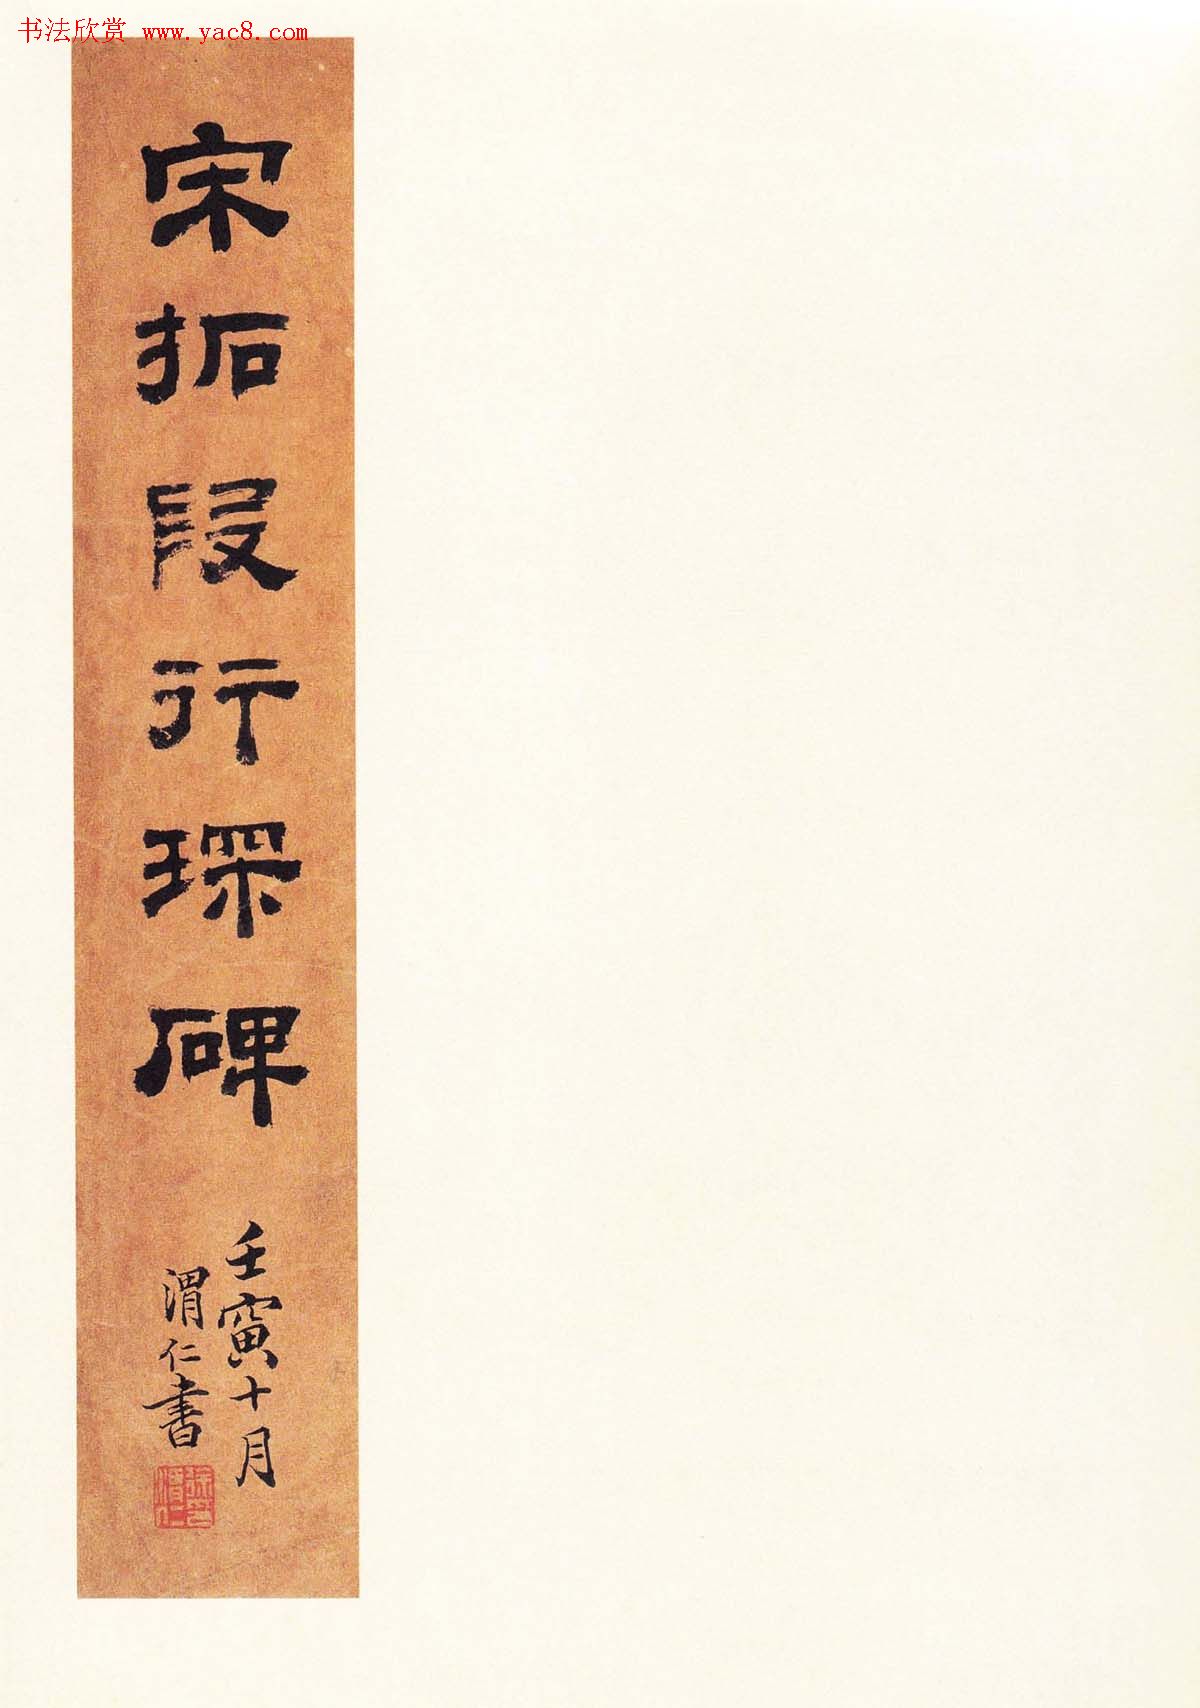 书法欣赏 www.yac8.com
宋拓段行琛碑
壬寅十月
渭仁書